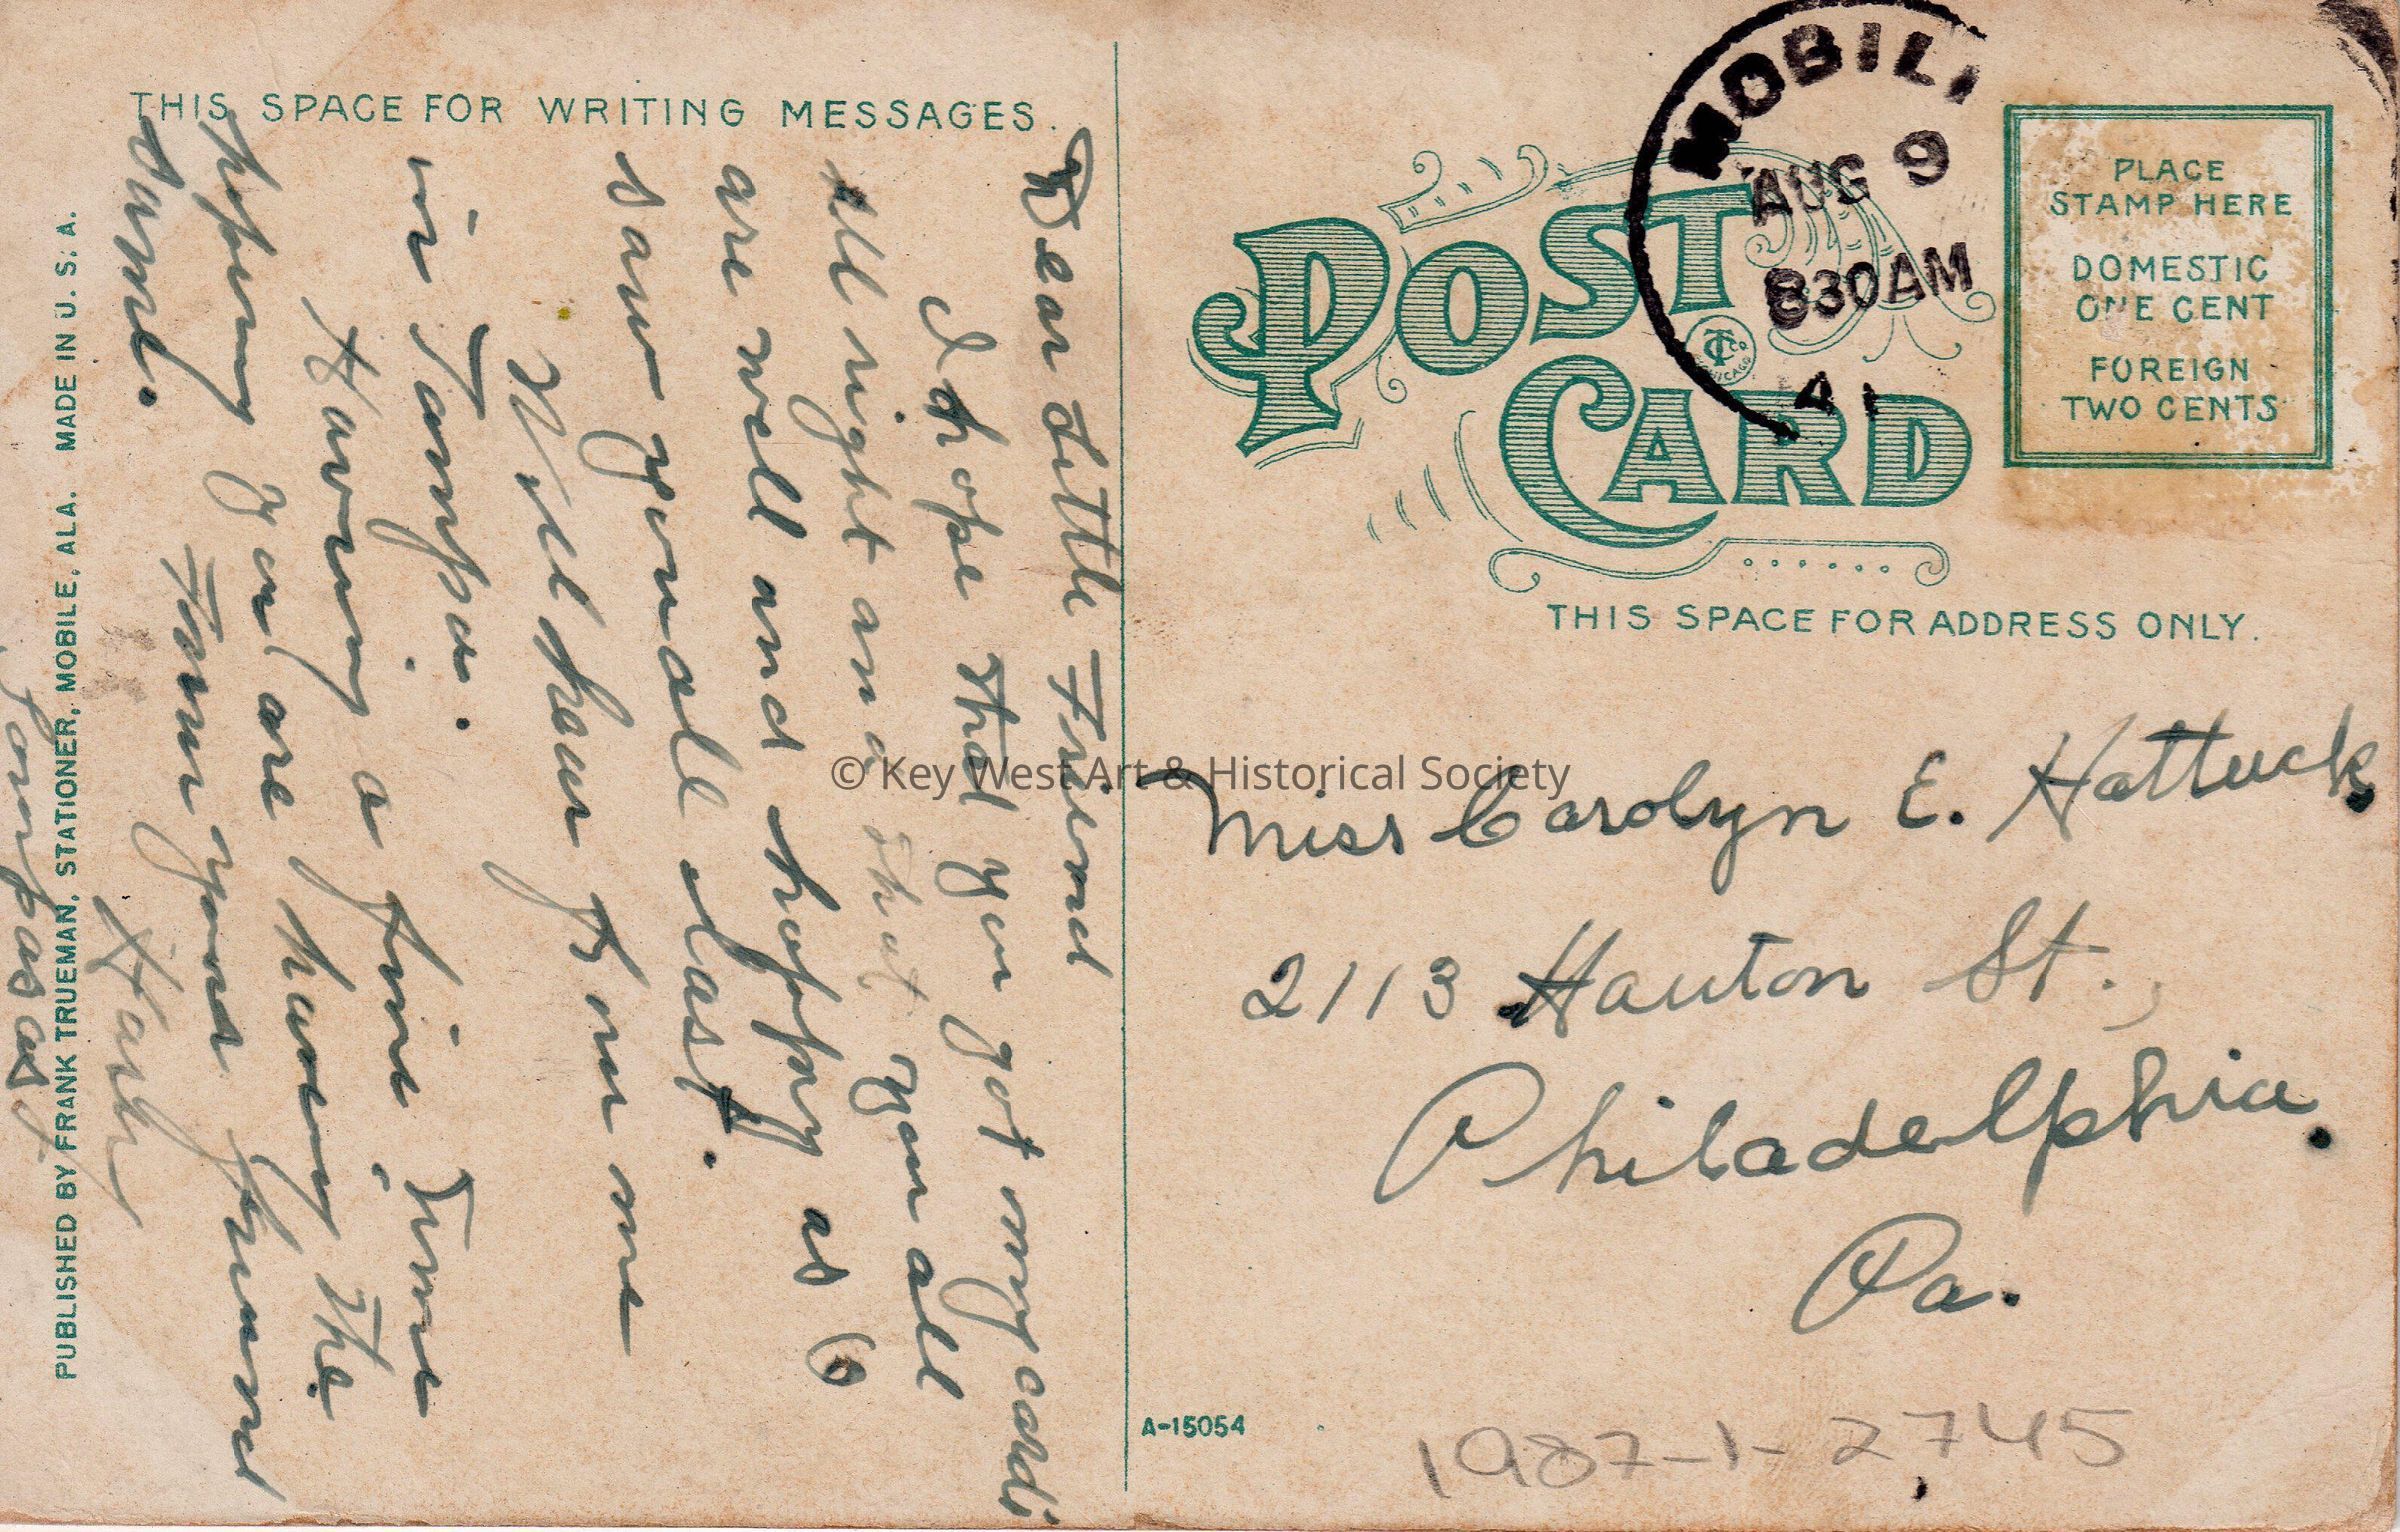 THIS SPACE FOR WRITING MESSAGES.
Dear Little Friend
I hope that you got my cards
all right and that you all
are well and happy as I
saw you all last.
Will hear from me
in Tampa.
Having a fine Time
hoping you are having the
same. From your friend
Harry
PUBLISHED BY FRANK TRUEMAN, STATIONER, MOBILE, ALA. MADE IN U. S. A.
POST CARD
CTCO CHICAGO
MOBIL
AUG 9
830AM
PLACE
STAMP HERE
DOMESTIC
ONE CENT
FOREIGN
TWO CENTS
THIS SPACE FOR ADDRESS ONLY.
Miss Carolyn E. Hattuck.
2113 Hauton St.,
Philadelphia.
Pa.
A-15054
1987-1-2745
© Key West Art & Historical Society